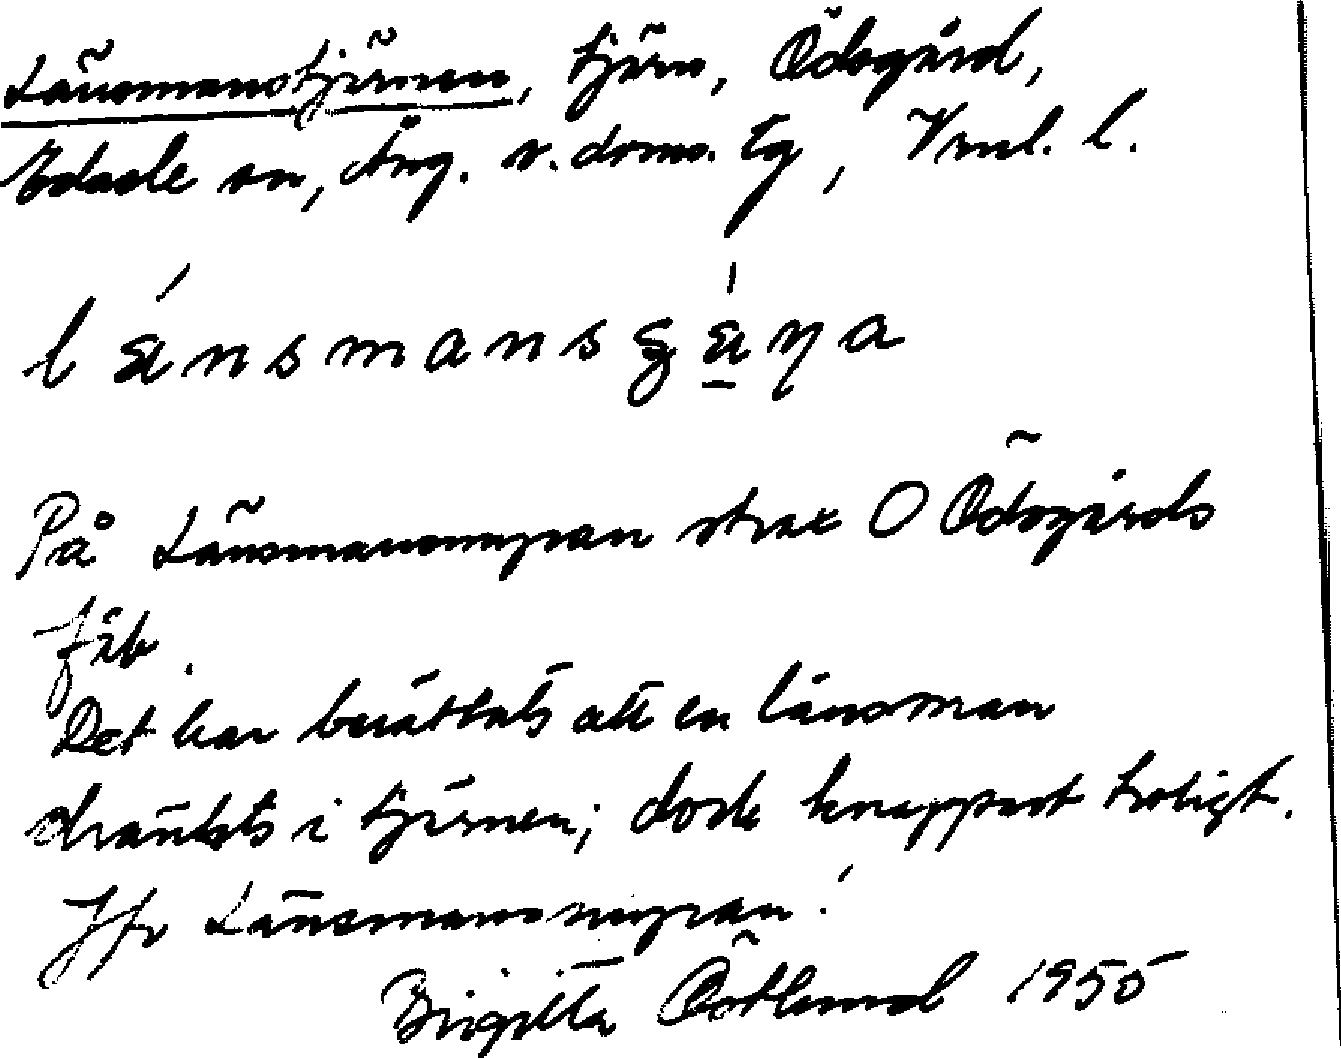 Länsmanstjärnen, tjärn, Ödsgård,
Edsele sn, Ång. v. doms. tg, Vrnl. l.
länsmansʒäŋa
På Länsmansmyran strax O Ödsgårds
fäb.
Det har berättats att en länsman
dränkts i tjärnen; dock knappast troligt.
Jfr Länsmansmyran!
Birgitta Östlund 1955